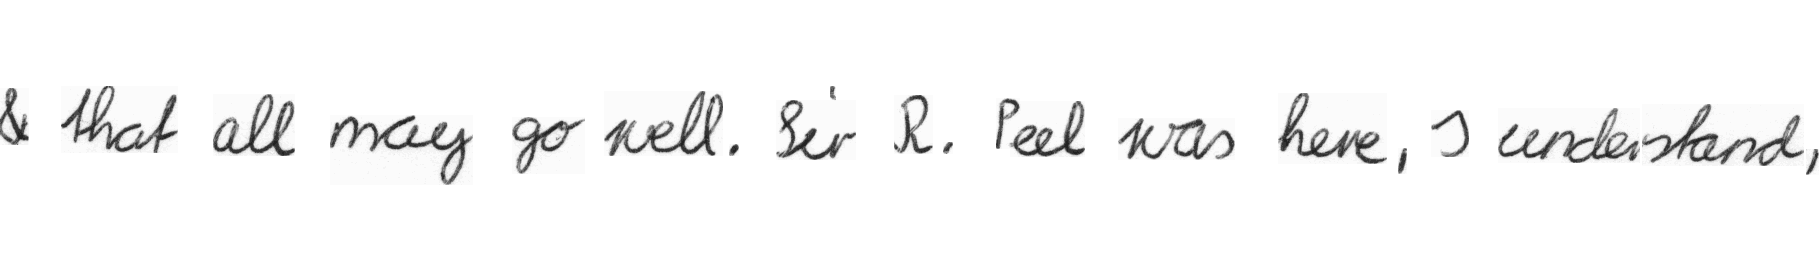 & that all may go well. Sir R. Peel was here, I understand,